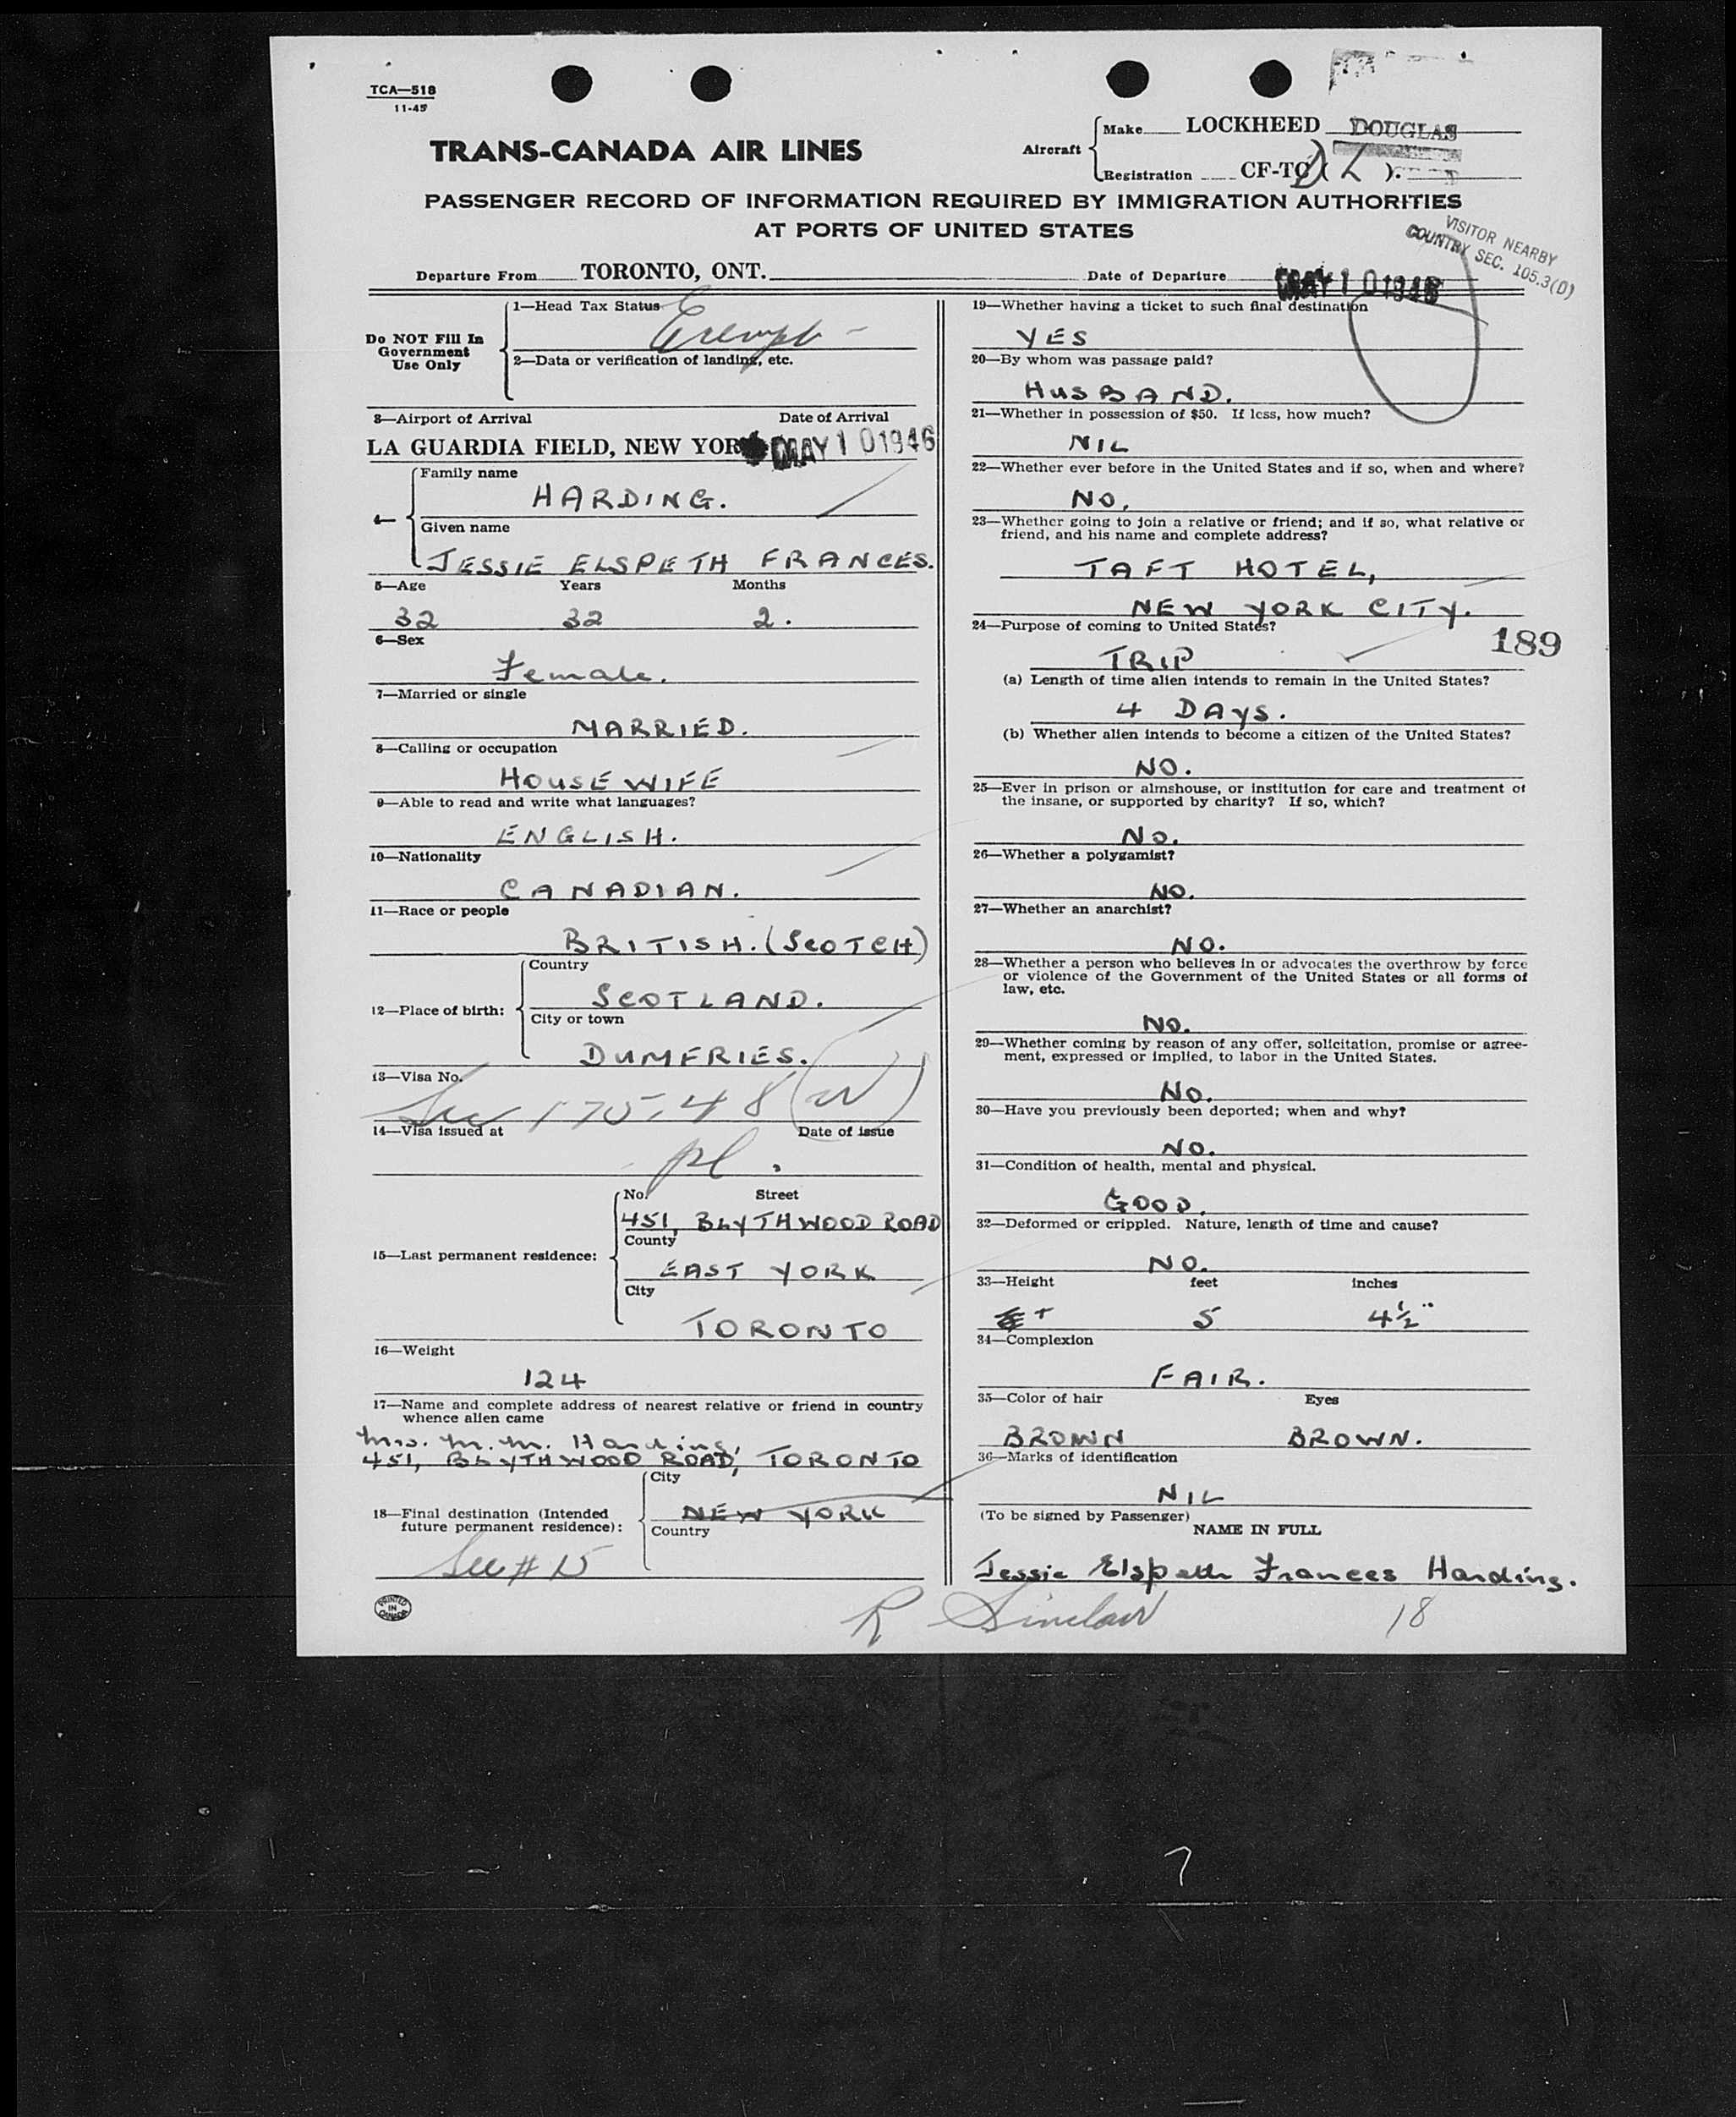 TCA—518
11-45
TRANS-CANADA AIR LINES
Aircraft
Make LOCKHEED DOUGLAS
Registration CF-TC( L ).
PASSENGER RECORD OF INFORMATION REQUIRED BY IMMIGRATION AUTHORITIES
AT PORTS OF UNITED STATES
VISITOR NEARBY
COUNTRY SEC. 105.3(D)
Departure From TORONTO, ONT. Date of Departure MAY 10 1946
Do NOT Fill In
Government
Use Only
1—Head Tax Status
Exempt
2—Data or verification of landing, etc.
3—Airport of Arrival Date of Arrival
LA GUARDIA FIELD, NEW YORK MAY 10 1946
4—
Family name
HARDING.
Given name
JESSIE ELSPETH FRANCES.
5—Age Years Months
32 32 2.
6—Sex
Female.
7—Married or single
MARRIED.
8—Calling or occupation
HOUSEWIFE
9—Able to read and write what languages?
ENGLISH.
10—Nationality
CANADIAN.
11—Race or people
BRITISH. (SCOTCH)
12—Place of birth:
Country
SCOTLAND.
City or town
DUMFRIES.
13—Visa No.
Sec 175.48
14—Visa issued at Date of issue
pl.
15—Last permanent residence:
No. Street
451, BLYTHWOOD ROAD
County
EAST YORK
City
TORONTO
16—Weight
124
17—Name and complete address of nearest relative or friend in country
whence alien came
Mrs. M. M. Harding,
451, BLYTHWOOD ROAD, TORONTO
18—Final destination (Intended
future permanent residence):
City
NEW YORK
Country
See # 15
PRINTED
IN
CANADA
19—Whether having a ticket to such final destination
YES
20—By whom was passage paid?
HUSBAND.
21—Whether in possession of $50. If less, how much?
NIL
22—Whether ever before in the United States and if so, when and where?
NO.
23—Whether going to join a relative or friend; and if so, what relative or
friend, and his name and complete address?
TAFT HOTEL,
NEW YORK CITY.
24—Purpose of coming to United States?
189
TRIP
(a) Length of time alien intends to remain in the United States?
4 DAYS.
(b) Whether alien intends to become a citizen of the United States?
NO.
25—Ever in prison or almshouse, or institution for care and treatment of
the insane, or supported by charity? If so, which?
NO.
26—Whether a polygamist?
NO.
27—Whether an anarchist?
NO.
28—Whether a person who believes in or advocates the overthrow by force
or violence of the Government of the United States or all forms of
law, etc.
NO.
29—Whether coming by reason of any offer, solicitation, promise or agree-
ment, expressed or implied, to labor in the United States.
NO.
30—Have you previously been deported; when and why?
NO.
31—Condition of health, mental and physical.
GOOD.
32—Deformed or crippled. Nature, length of time and cause?
NO.
33—Height feet inches
5 4½"
34—Complexion
FAIR.
35—Color of hair Eyes
BROWN BROWN.
36—Marks of identification
NIL
(To be signed by Passenger)
NAME IN FULL
Jessie Elspeth Frances Harding.
R Sinclair 18